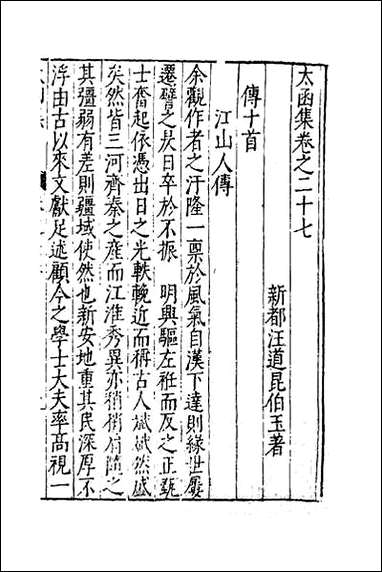 太函集卷之二十七
新都汪道昆伯玉著
傳十首
江山人傳
余觀作者之汙隆一禀於風氣自漢下達則緣世屢
遷譬之昃日卒於不振　明興驅左袵而反之正
士奮起依憑出日之光軼輓近而稱古人斌斌然盛
矣然皆三河齊秦之産而江淮秀異亦稍稍肩隨之
其彊弱有差則疆域使然也新安地重其民深厚不
浮由古以來文獻足述顧今之學士大夫率高視一